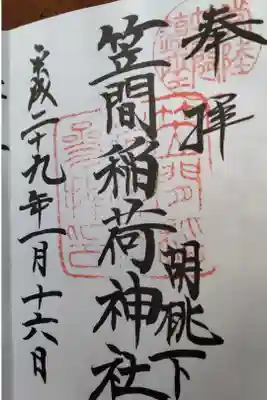 奉拝
胡桃下
笠間稲荷神社
平成二十九年一月十六日